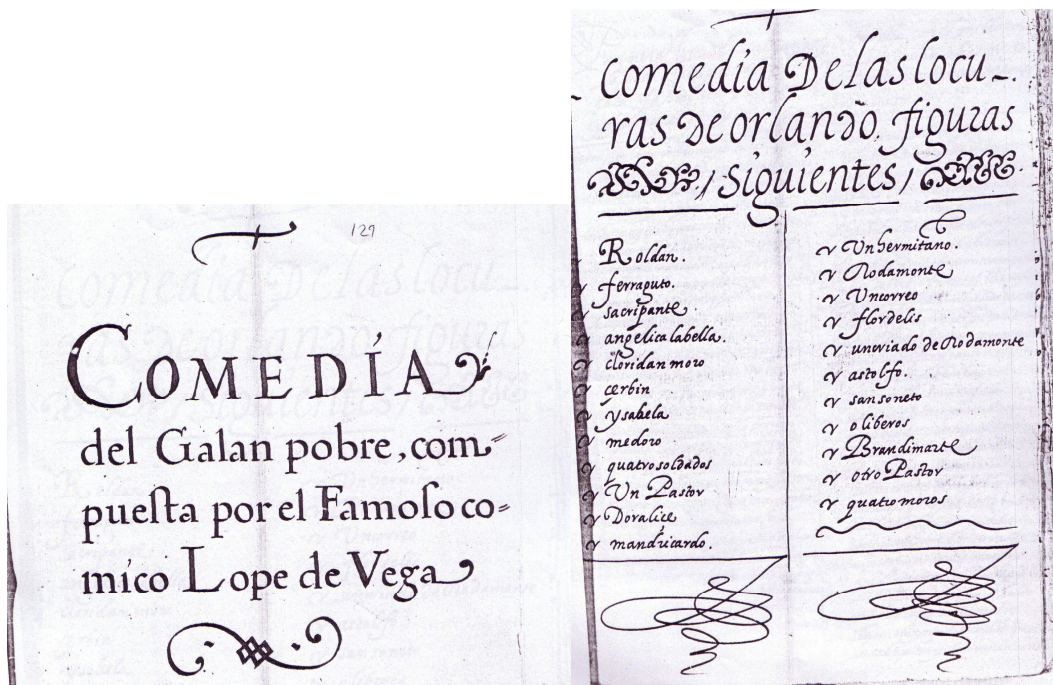 129
COMEDÍA
del Galan pobre, com=
puesta por el Famoso co=
mico Lope de Vega
Comedia De las locu-.
ras de orlando. figuras
/ siguientes /
Roldan.
ferraguto.
sacripante
angelica la bella.
cloridan moro
cerbin
ysabela
medoro
quatro soldados
Un Pastor
Doralice
mandricardo.
Un hermitano.
Rodamonte
Un correo
flordelis
un criado de Rodamonte
astolfo.
sansoneto
oliberos
Brandimarte
otro Pastor
quatro moros